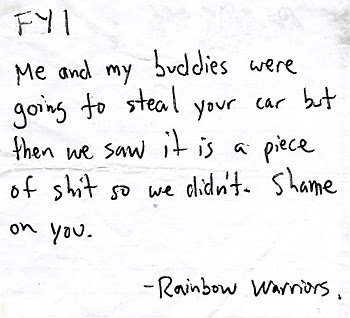 FYI
Me and my buddies were
going to steal your car but
then we saw it is a piece
of shit so we didn't. Shame
on you.
-Rainbow Warriors.